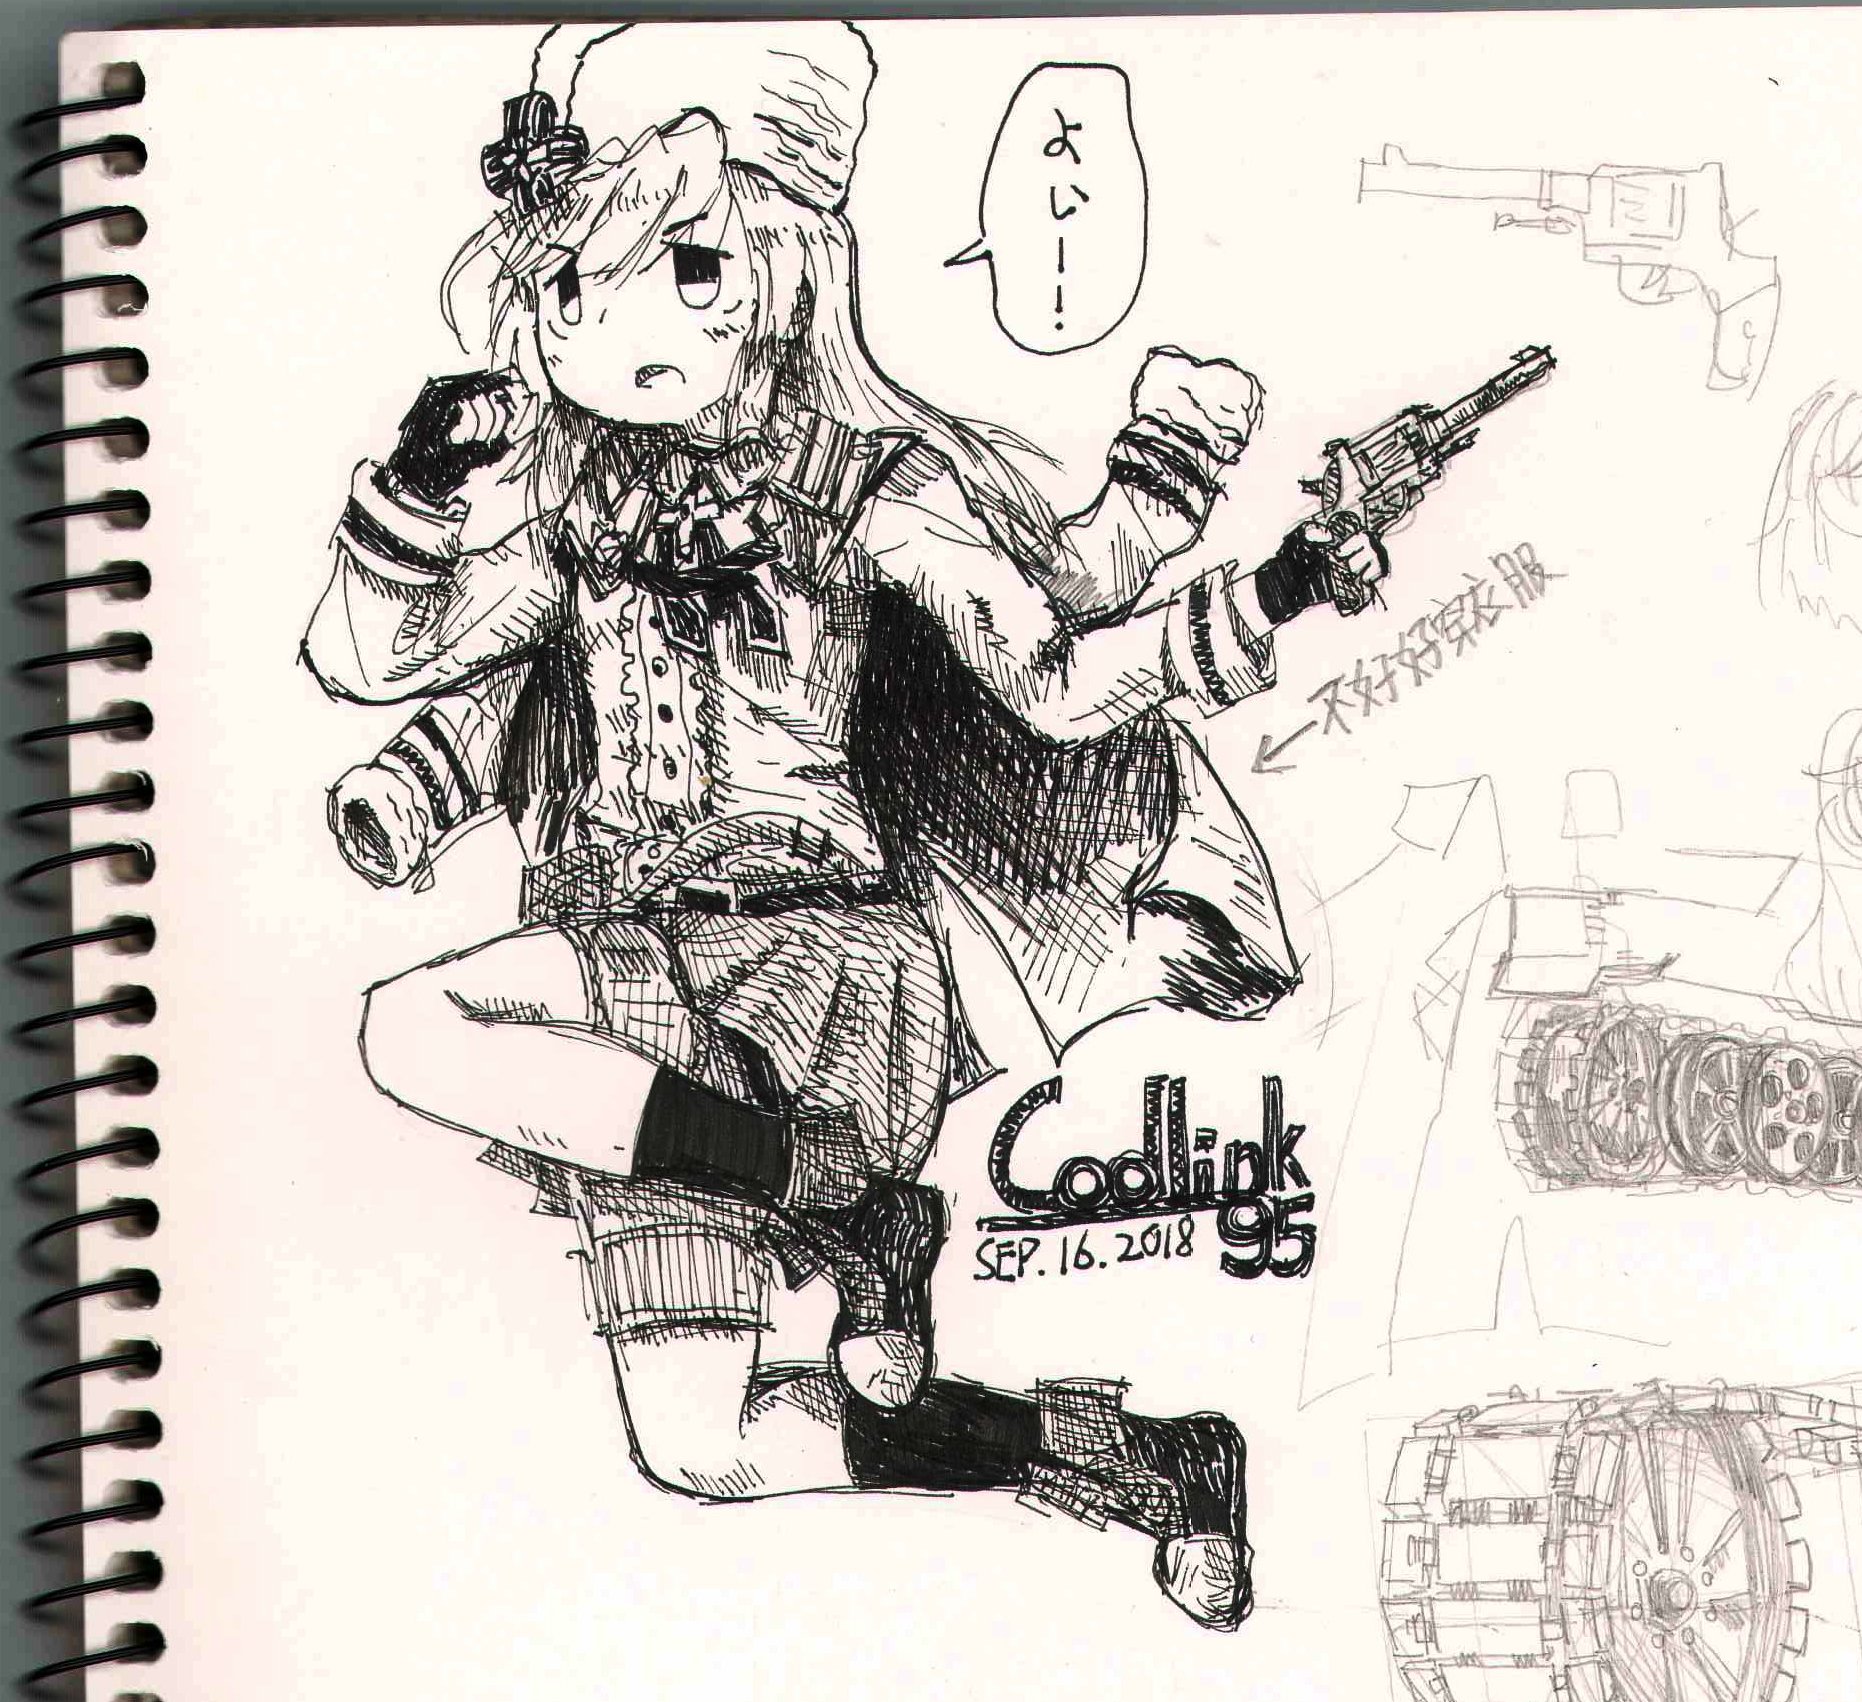 よぃーー!
←不好好穿衣服
Codlink
95
SEP. 16. 2018